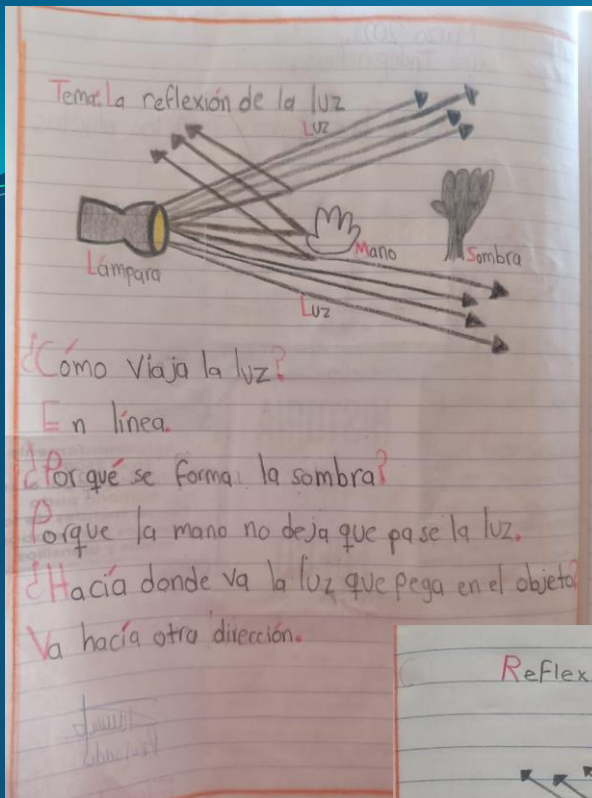 Tema: La reflexión de la luz
Luz
Mano
Sombra
Lámpara
Luz
¿Cómo viaja la luz?
En línea.
¿Por qué se forma la sombra?
Porque la mano no deja que pase la luz.
¿Hacía donde va la luz que pega en el objeto?
Va hacía otra dirección.
Reflex